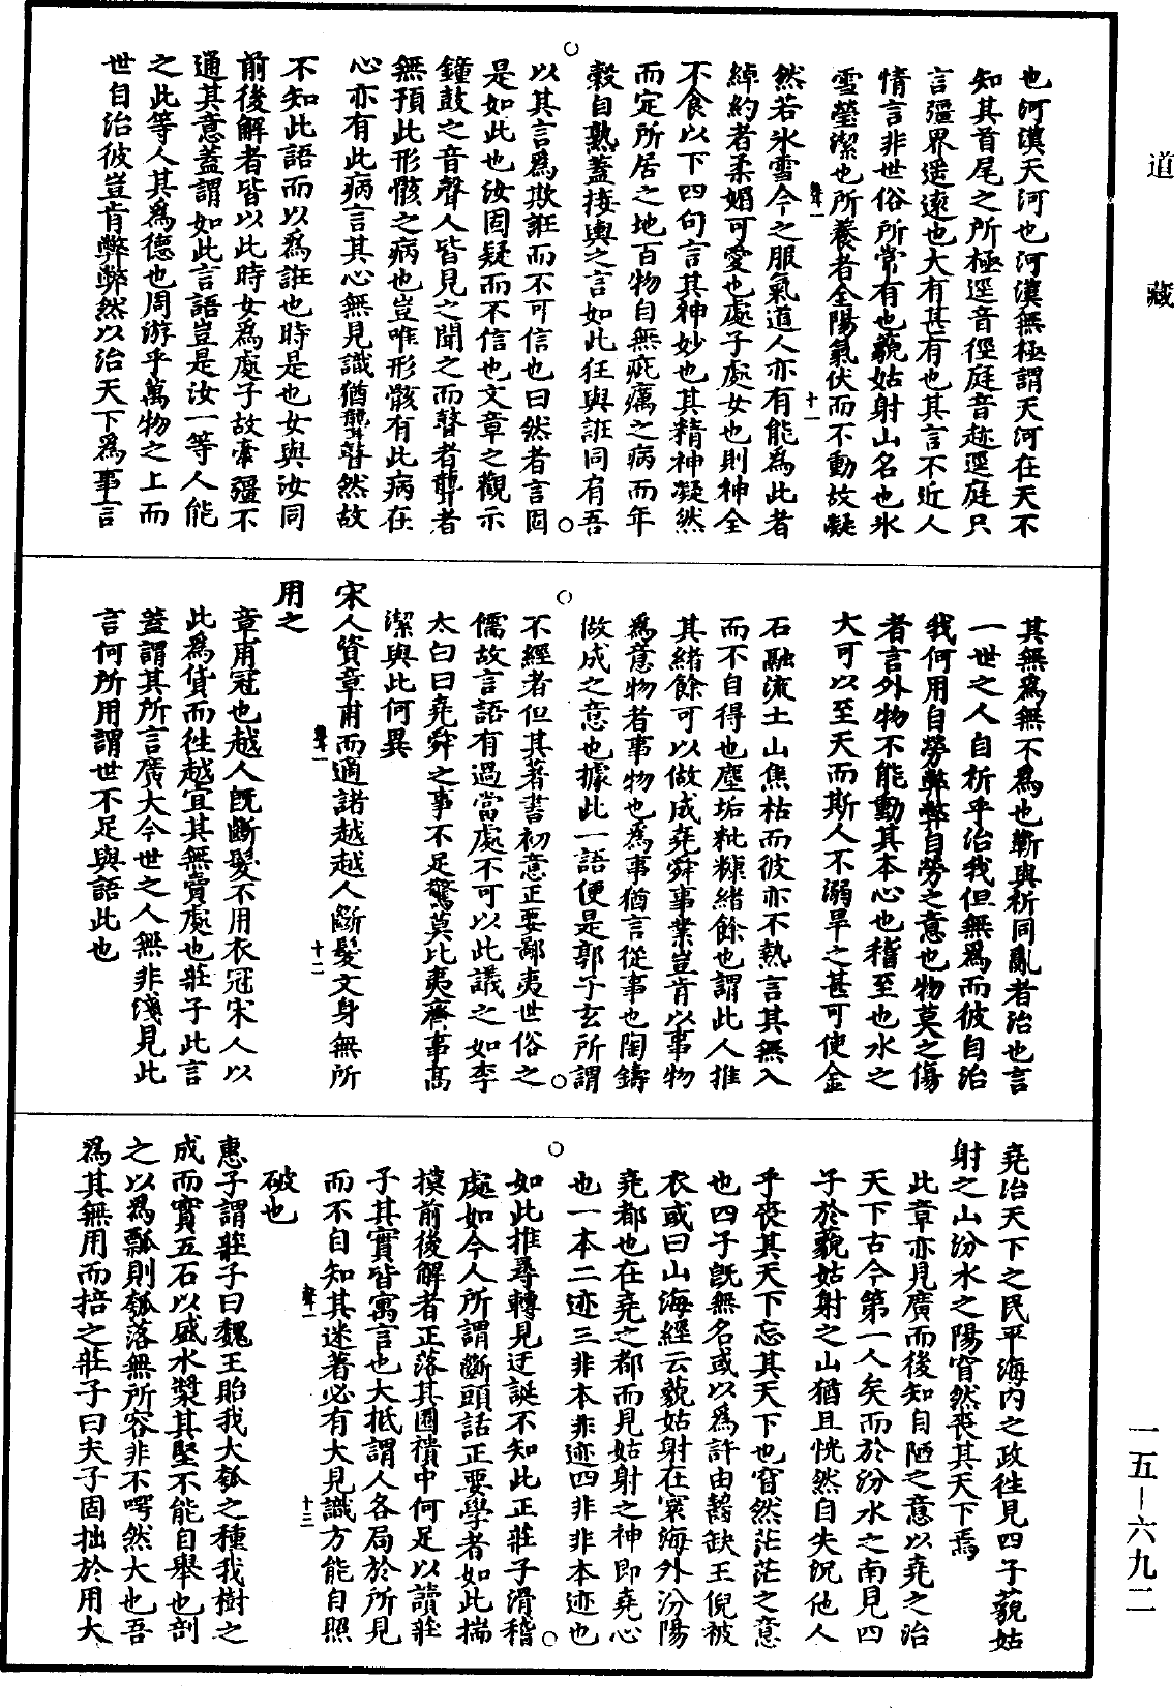 道藏
也河漢天河也河漢無極謂天河在天不
知其首尾之所極逕音徑庭音趂逕庭只
言疆界遥遠也大有甚有也其言不近人
情言非世俗所常有也藐姑射山名也氷
雪瑩潔也所養者全陽氣伏而不動故凝
然若氷雪今之服氣道人亦有能為此者
綽約者柔媚可愛也處子處女也則神全
不食以下四句言其神妙也其精神凝然
而定所居之地百物自無疵癘之病而年
穀自熟蓋接輿之言如此狂與誑同有吾
以其言為欺誑而不可信也曰然者言固
是如此也汝固疑而不信也文章之觀示
鐘鼓之音聲人皆見之聞之而瞽者聾者
無預此形骸之病也豈唯形骸有此病在
心亦有此病言其心無見識猶聾瞽然故
不知此語而以為誑也時是也女與汝同
前後解者皆以此時女為處子故牽彊不
通其意蓋謂如此言語豈是汝一等人能
之此等人其為德也周游乎萬物之上而
世自治彼豈肯弊弊然以治天下為事言
其無為無不為也蘄與祈同亂者治也言
一世之人自祈乎治我但無為而彼自治
我何用自勞弊弊自勞之意也物莫之傷
者言外物不能動其本心也稽至也水之
大可以至天而斯人不溺旱之甚可使金
石融流土山焦枯而彼亦不熱言其無入
而不自得也塵垢粃糠緒餘也謂此人推
其緒餘可以做成堯舜事業豈肯以事物
為意物者事物也為事猶言從事也陶鑄
做成之意也據此一語便是郭子玄所謂
不經者但其著書初意正要鄙夷世俗之
儒故言語有過當處不可以此議之如李
太白曰堯舜之事不足驚莫比夷齊事高
潔與此何異
宋人資章甫而適諸越越人斷髮文身無所
用之
章甫冠也越人既斷髮不用衣冠宋人以
此為貨而往越宜其無賣處也莊子此言
蓋謂其所言廣大今世之人無非淺見此
言何所用謂世不足與語此也
堯治天下之民平海內之政往見四子藐姑
射之山汾水之陽窅然喪其天下焉
此章亦見廣而後知自陋之意以堯之治
天下古今第一人矣而於汾水之南見四
子於藐姑射之山猶且恍然自失況他人
乎喪其天下忘其天下也窅然茫茫之意
也四子既無名或以為許由齧缺王倪被
衣或曰山海經云藐姑射在寰海外汾陽
堯都也在堯之都而見姑射之神即堯心
也一本二迹三非本非迹四非非本迹也
如此推尋轉見迂誕不知此正莊子滑稽
處如今人所謂斷頭話正要學者如此揣
摸前後解者正落其圈襀中何足以讀莊
子其實皆寓言也大抵謂人各局於所見
而不自知其迷著必有大見識方能自照
破也
惠子謂莊子曰魏王貽我大瓠之種我樹之
成而實五石以盛水漿其堅不能自舉也剖
之以為瓢則瓠落無所容非不呺然大也吾
為其無用而掊之莊子曰夫子固拙於用大
十一
十二
十三
一五-六九二